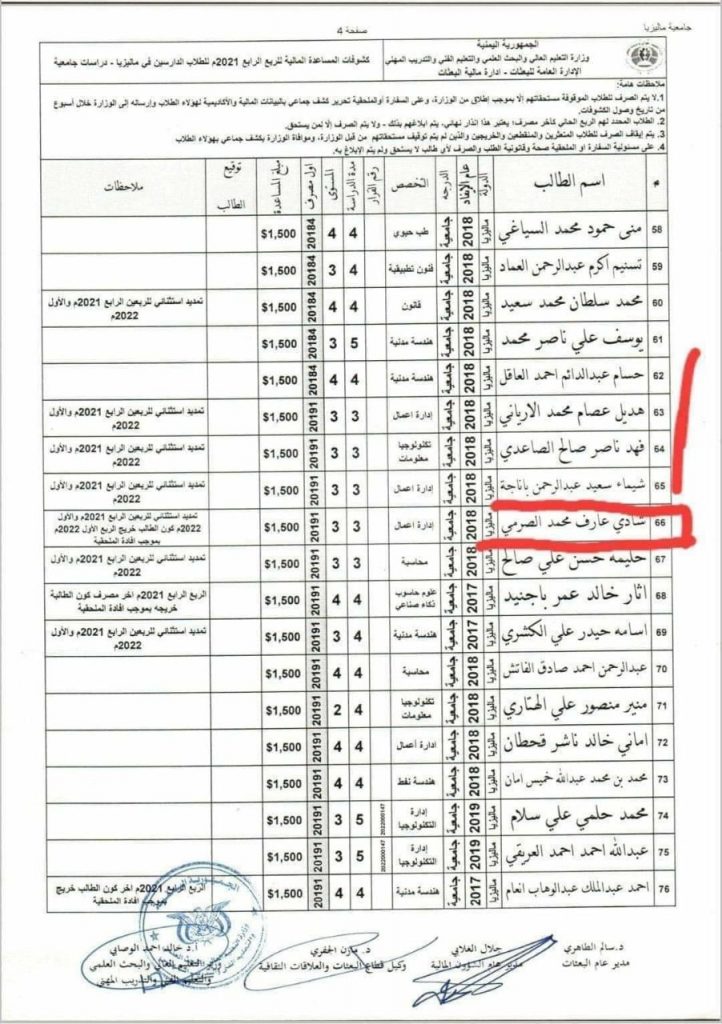 جامعية ماليزيا
صفحة 4
الجمهورية اليمنية
وزارة التعليم العالي والبحث العلمي والتعليم الفني والتدريب المهني
الإدارة العامة للبعثات - ادارة مالية البعثات
كشوفات المساعدة المالية للربع الرابع 2021م للطلاب الدارسين في ماليزيا - دراسات جامعية
ملاحظات هامة:
1. لا يتم الصرف للطلاب الموقوفة مستحقاتهم إلا بموجب إطلاق من الوزارة، وعلى السفارة أو الملحقية تحرير كشف جماعي بالبيانات المالية والأكاديمية لهؤلاء الطلاب وإرساله إلى الوزارة خلال أسبوع من تاريخ وصول الكشوفات.
2. الطلاب المحدد لهم الربع الحالي كآخر مصرف؛ يعتبر هذا انذار نهائي، يتم ابلاغهم بذلك - ولا يتم الصرف إلا لمن يستحق.
3. يتم إيقاف الصرف للطلاب المتعثرين والمنقطعين والخريجين والذين لم يتم توقيف مستحقاتهم من قبل الوزارة، وموافاة الوزارة بكشف جماعي بهؤلاء الطلاب
4. على مسئولية السفارة او الملحقية صحة وقانونية الطلب والصرف لأي طالب لا يستحق ولم يتم الإبلاغ به
م اسم الطالب الدولة عام الإيفاد الدرجه التخصص رقم القرار مدة الدراسة المستوى اول مصرف مبلغ المساعدة توقيع الطالب ملاحظات
58 منى حمود محمد السياغي ماليزيا 2018 جامعية طب حيوي 4 4 20184 $1,500
59 تسنيم اكرم عبدالرحمن العماد ماليزيا 2018 جامعية فنون تطبيقية 4 3 20184 $1,500
60 محمد سلطان محمد سعيد ماليزيا 2018 جامعية قانون 4 4 20184 $1,500 تمديد استثنائي للربعين الرابع 2021م والأول 2022م
61 يوسف علي ناصر محمد ماليزيا 2018 جامعية هندسة مدنية 5 3 20184 $1,500
62 حسام عبدالدائم احمد العاقل ماليزيا 2018 جامعية هندسة مدنية 4 4 20184 $1,500
63 هديل عصام محمد الارياني ماليزيا 2018 جامعية إدارة اعمال 3 3 20191 $1,500 تمديد استثنائي للربعين الرابع 2021م والأول 2022م
64 فهد ناصر صالح الصاعدي ماليزيا 2018 جامعية تكنولوجيا معلومات 3 3 20191 $1,500 تمديد استثنائي للربعين الرابع 2021م والأول 2022م
65 شيماء سعيد عبدالرحمن باناجة ماليزيا 2018 جامعية إدارة اعمال 3 3 20191 $1,500 تمديد استثنائي للربعين الرابع 2021م والأول 2022م
66 شادي عارف محمد الصرمي ماليزيا 2018 جامعية إدارة اعمال 3 3 20191 $1,500 تمديد استثنائي للربعين الرابع 2021م والأول 2022م كون الطالب خريج الربع الأول 2022م بموجب افادة الملحقية
67 حليمه حسن علي صالح ماليزيا 2018 جامعية محاسبة 3 3 20191 $1,500 تمديد استثنائي للربعين الرابع 2021م والأول 2022م
68 اثار خالد عمر باجنيد ماليزيا 2017 جامعية علوم حاسوب ذكاء صناعي 4 4 20191 $1,500 الربع الرابع 2021م اخر مصرف كون الطالبة خريجه بموجب افادة الملحقية
69 اسامه حيدر علي الكشري ماليزيا 2018 جامعية هندسة مدنية 4 3 20191 $1,500 تمديد استثنائي للربعين الرابع 2021م والأول 2022م
70 عبدالرحمن احمد صادق الفاتش ماليزيا 2018 جامعية محاسبة 4 4 20191 $1,500
71 منير منصور علي الهتاري ماليزيا 2018 جامعية تكنولوجيا معلومات 4 2 20191 $1,500
72 اماني خالد ناشر قحطان ماليزيا 2018 جامعية ادارة أعمال 4 4 20191 $1,500
73 محمد بن محمد عبدالله خميس امان ماليزيا 2018 جامعية هندسة نفط 4 4 20191 $1,500
74 محمد حلمي علي سلام ماليزيا 2019 جامعية إدارة التكنولوجيا 2022000147 5 3 20191 $1,500
75 عبدالله احمد احمد العريقي ماليزيا 2019 جامعية إدارة التكنولوجيا 2022000147 5 3 20191 $1,500
76 احمد عبدالملك عبدالوهاب انعام ماليزيا 2017 جامعية هندسة مدنية 4 4 20191 $1,500 الربع الرابع 2021م اخر كون الطالب خريج بموجب افادة الملحقية
د.سالم الطاهري
مدير عام البعثات
جلال العلابي
مدير عام الشؤون المالية
د. مازن الجفري
وكيل قطاع البعثات والعلاقات الثقافية
أ.د. خالد احمد الوصابي
وزير التعليم العالي والبحث العلمي
والتعليم الفني والتدريب المهني